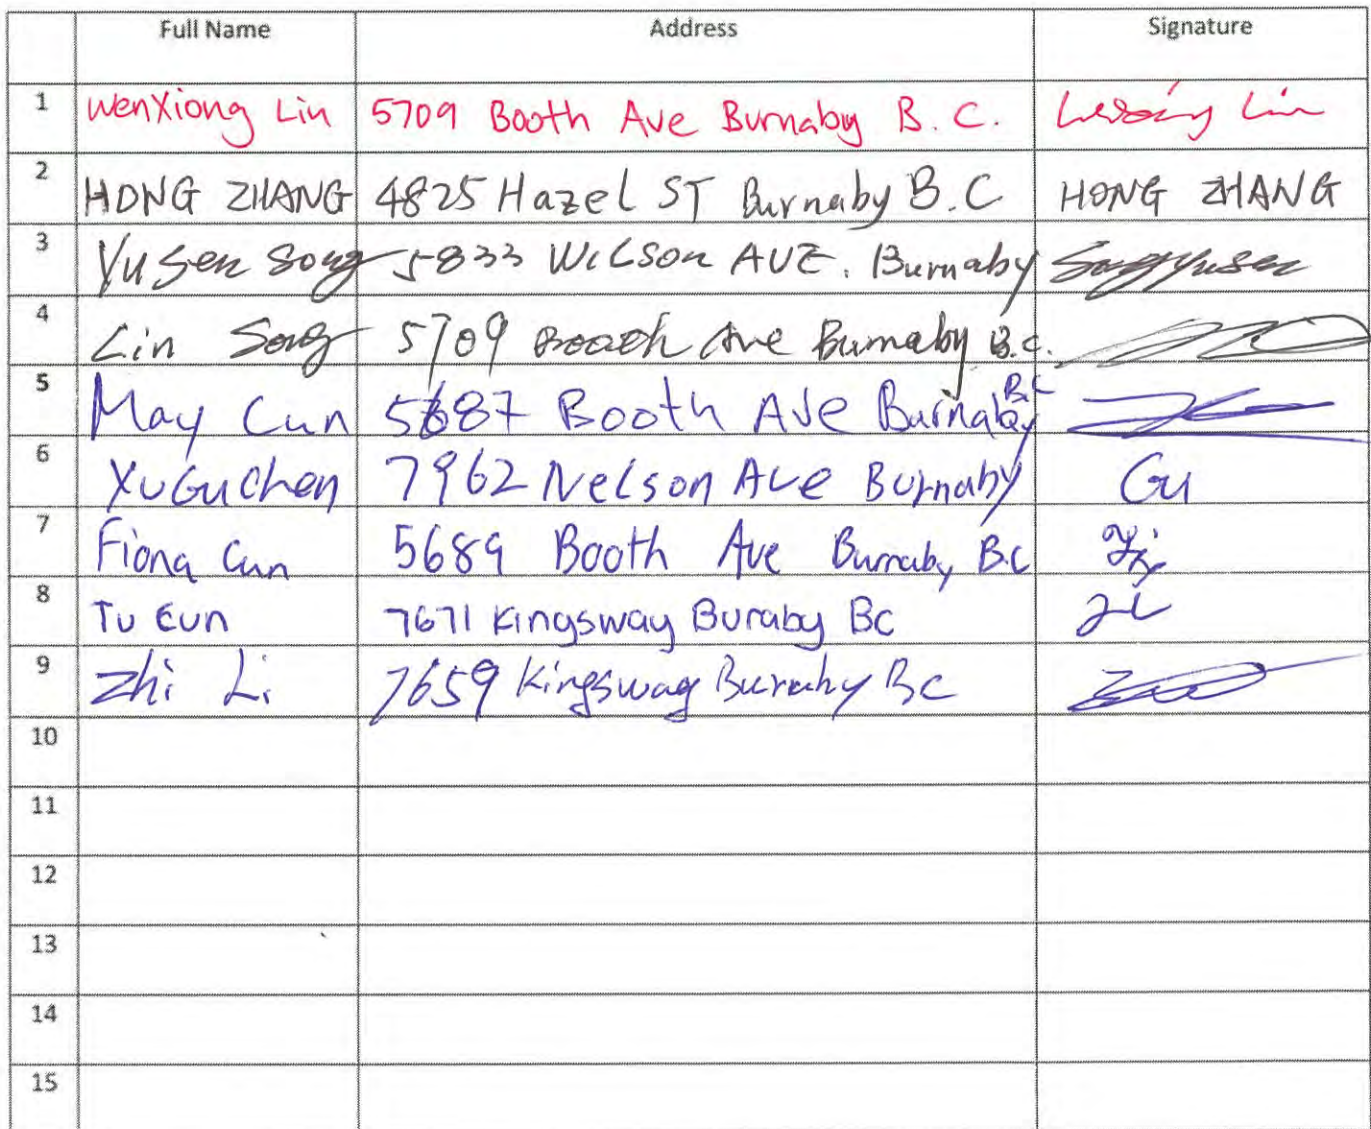 Full Name Address Signature
1 WenXiong Lin 5709 Booth Ave Burnaby B.C. Lin
2 HONG ZHANG 4825 Hazel ST Burnaby B.C HONG ZHANG
3 Yu Sen Song 5833 WiLSon AVE. Burnaby Songyusen
4 Lin Song 5709 Booth Ave Burnaby B.C.
5 May Cun 5687 Booth Ave Burnaby B.C
6 XuGuChen 7962 Nelson Ave Burnaby Gu
7 Fiona Cun 5689 Booth Ave Burnaby B.C
8 Tu Cun 7671 Kingsway Buraby BC
9 Zhi Li 7659 Kingsway Buraby BC
10
11
12
13
14
15